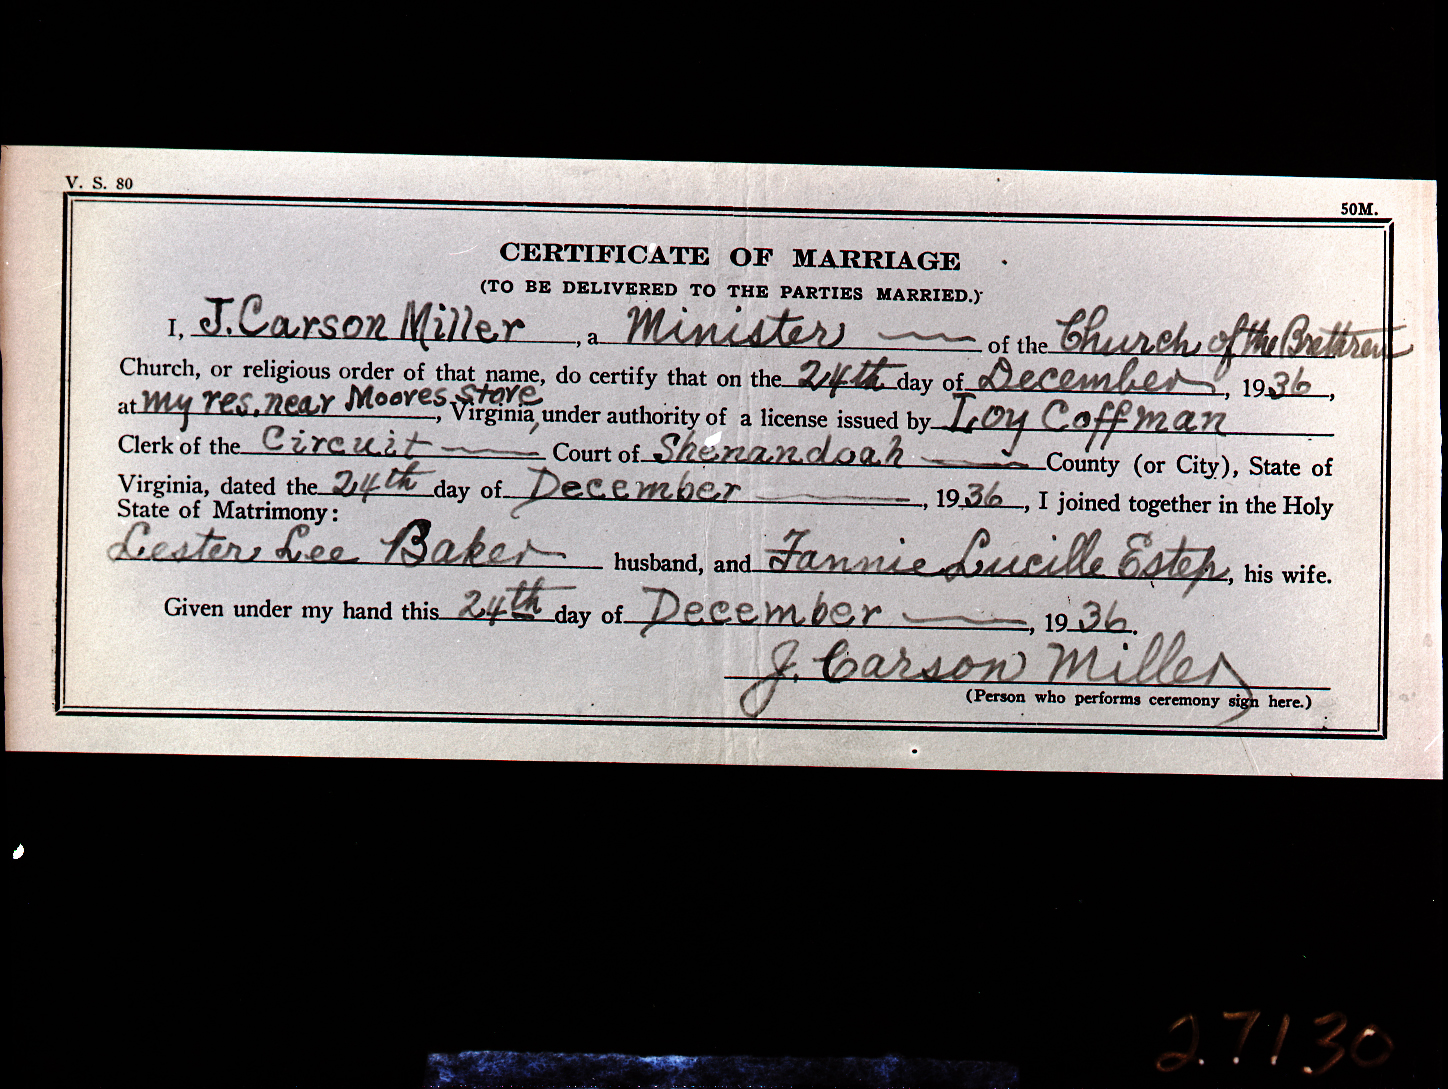 V. S. 80
50M.
CERTIFICATE OF MARRIAGE
(TO BE DELIVERED TO THE PARTIES MARRIED.)
I, J. Carson Miller, a Minister of the Church of the Brethren
Church, or religious order of that name, do certify that on the 24th day of December, 1936,
at my res. near Moores Store, Virginia, under authority of a license issued by Loy Coffman
Clerk of the Circuit Court of Shenandoah County (or City), State of
Virginia, dated the 24th day of December, 1936, I joined together in the Holy
State of Matrimony:
Lester Lee Baker husband, and Fannie Lucille Estep, his wife.
Given under my hand this 24th day of December, 1936.
J. Carson Miller
(Person who performs ceremony sign here.)
27130